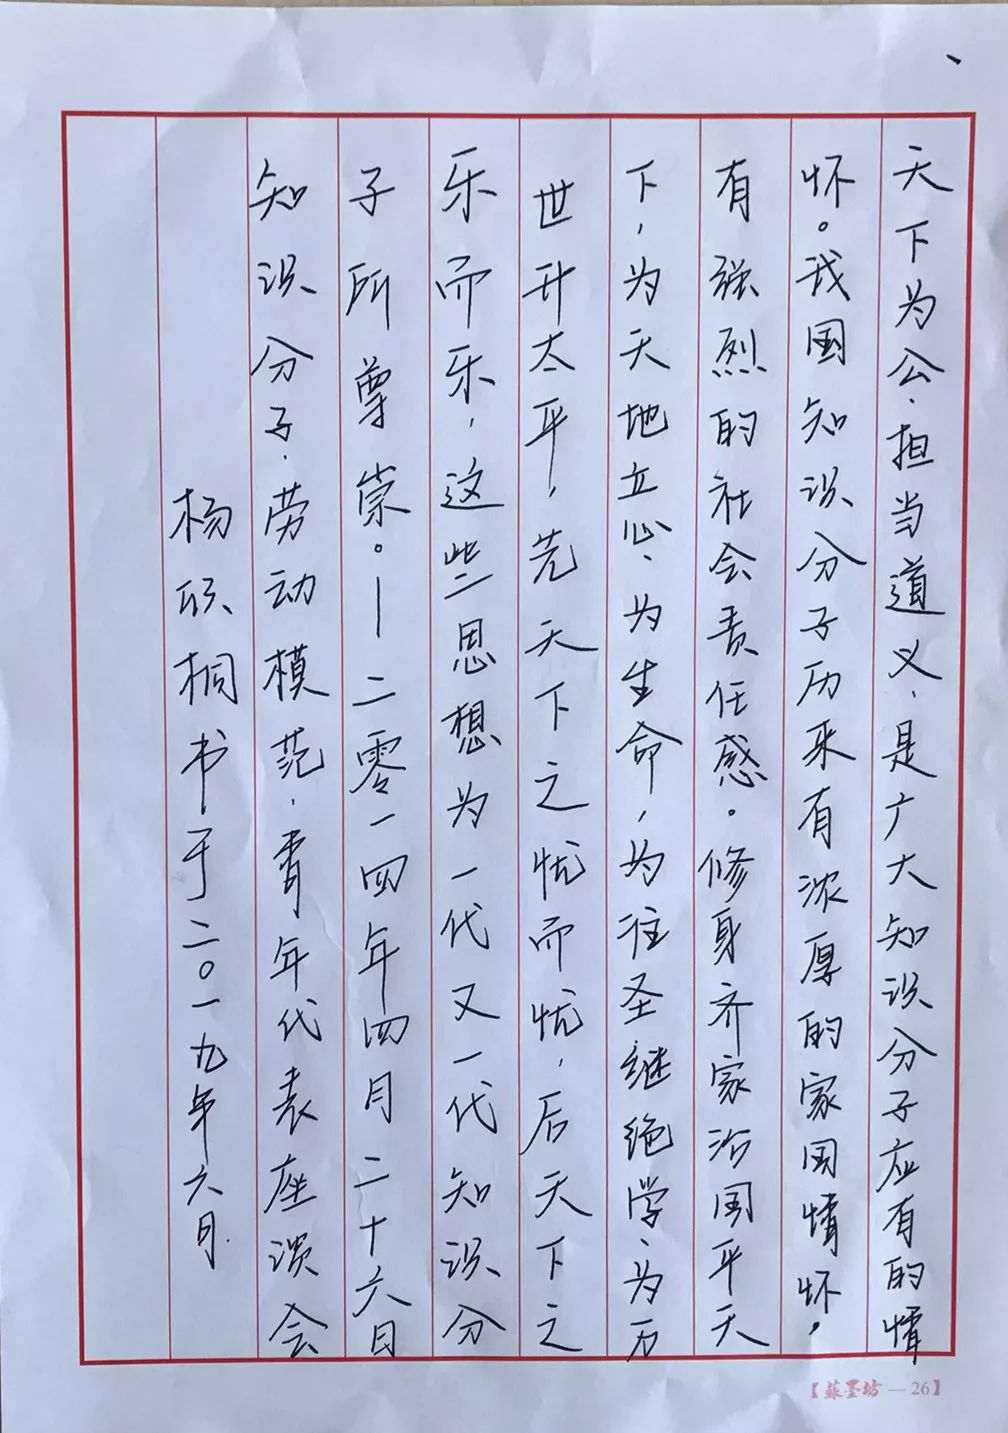 天下为公、担当道义、是广大知识分子应有的情
怀。我国知识分子历来有浓厚的家国情怀，
有强烈的社会责任感。修身齐家治国平天
下，为天地立心、为生命，为往圣继绝学、为万
世开太平，先天下之忧而忧，后天下之
乐而乐，这些思想为一代又一代知识分
子所尊崇。—二零一四年四月二十六日
知识分子、劳动模范、青年代表座谈会
杨欣桐书于二〇一九年六月.
【蘇墨坊—26】